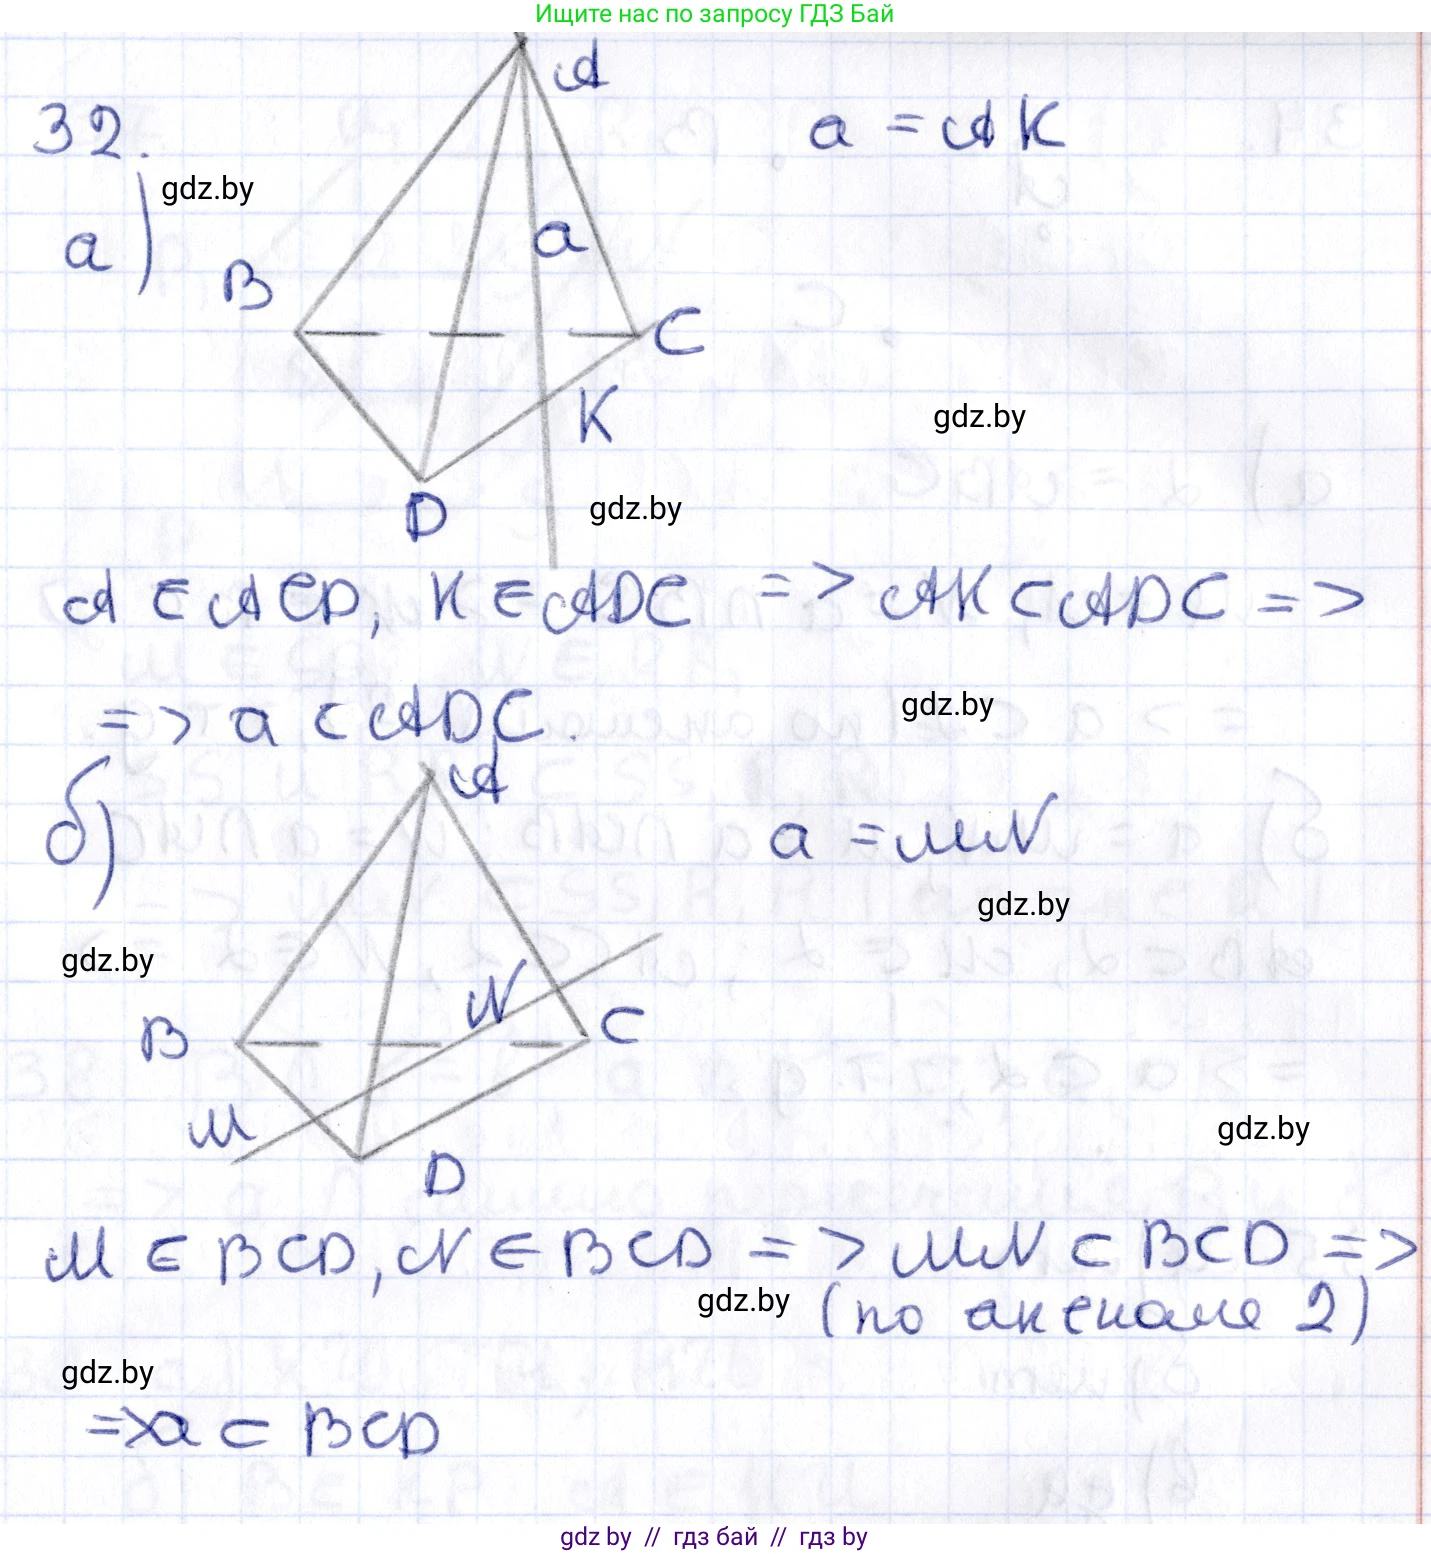 Ищите нас по запросу ГДЗ Бай
32.
A
a = AK
gdz.by
а)
a
B
C
K
gdz.by
D
gdz.by
A ∈ ACD, K ∈ ADC => AK ⊂ ADC =>
=> a ⊂ ADC.
gdz.by
A
б)
a = MN
gdz.by
gdz.by
N
B
C
M
gdz.by
D
M ∈ BCD, N ∈ BCD => MN ⊂ BCD =>
gdz.by
(по аксиоме 2)
gdz.by
=> a ⊂ BCD
gdz by // гдз бай // гдз by